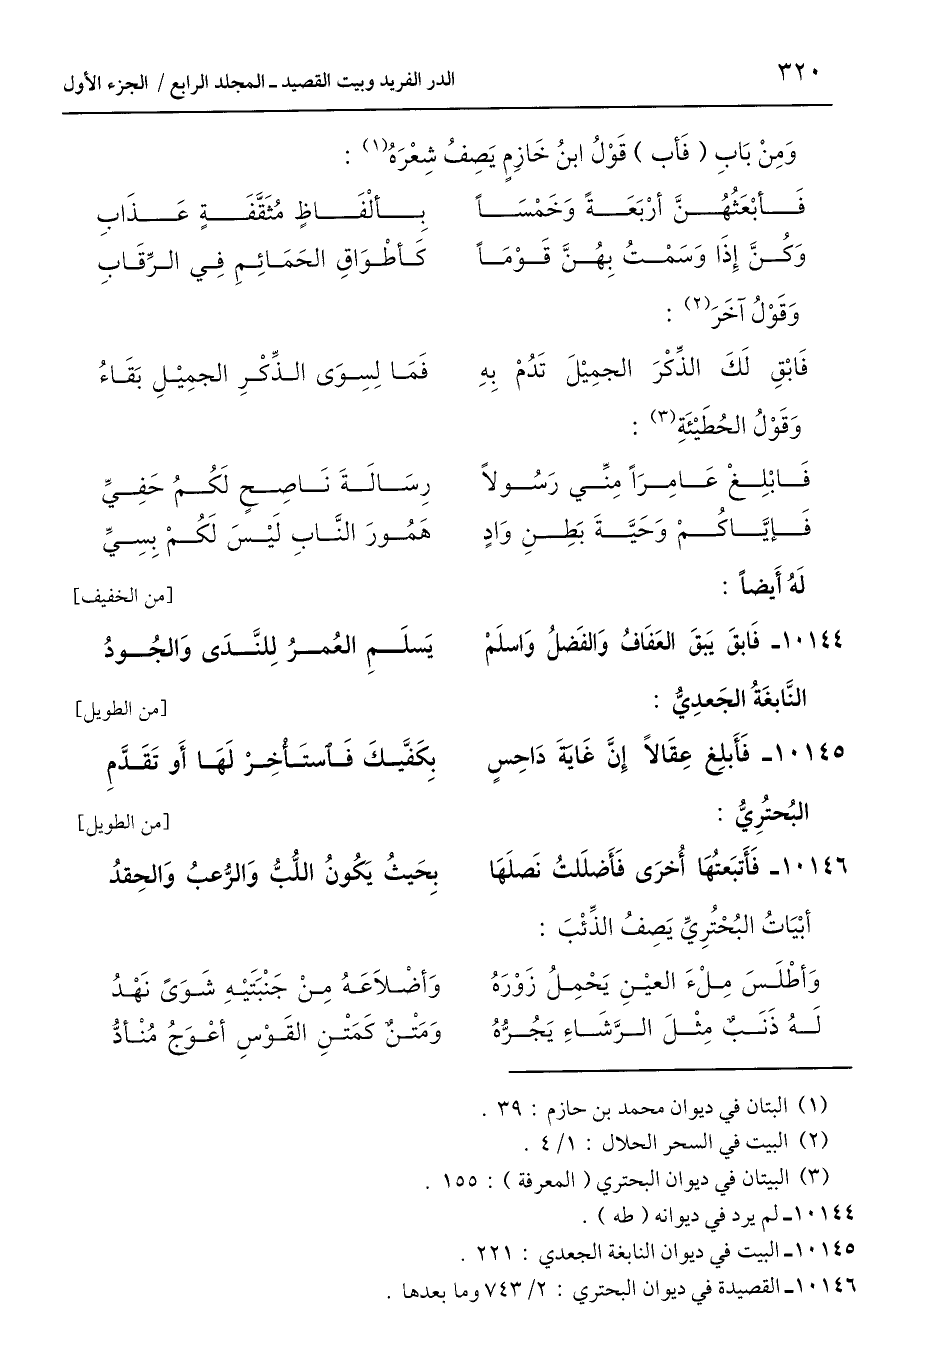 ٣٢٠ الدر الفريد وبيت القصيد ـ المجلد الرابع / الجزء الأول
وَمِنْ بَابِ ( فَأب ) قَوْلُ ابنُ خَازِمٍ يَصِفُ شِعْرَهُ(١) :
فَأبْعَثُهُنَّ أرْبَعَةً وَخَمْسَاً بِألْفَاظٍ مُثَقَّفَةٍ عَذَابِ
وَكُنَّ إِذَا وَسَمْتُ بِهُنَّ قَوْمَاً كَأطْوَاقِ الحَمَائِمِ فِي الرِّقَابِ
وَقَوْلُ آخَرَ(٢) :
فَابْقِ لَكَ الذِّكْرَ الجمِيْلَ تَدُمْ بِهِ فَمَا لِسِوَى الذِّكْرِ الجمِيْلِ بَقَاءُ
وَقَوْلُ الحُطَيْئَةِ(٣) :
فَابْلِغْ عَامِرَاً مِنِّي رَسُولاً رِسَالَةَ نَاصِحٍ لَكُمُ حَفِيِّ
فَإيَّاكُمْ وَحَيَّةَ بَطِنِ وَادٍ هَمُورَ النَّابِ لَيْسَ لَكُمْ بِسِيِّ
لَهُ أَيضاً : [من الخفيف]
١٠١٤٤ـ فَابقَ يَبقَ العَفَافُ وَالفَضلُ وَاسلَمْ يَسلَمِ العُمرُ لِلنَّدَى وَالجُودُ
النَّابِغَةُ الجَعدِيُّ : [من الطويل]
١٠١٤٥ـ فَأَبلِغ عِقَالاً إِنَّ غَايَةَ دَاحِسٍ بِكَفَّيكَ فَاستَأْخِرْ لَهَا أَو تَقَدَّمِ
البُحتُرِيُّ : [من الطويل]
١٠١٤٦ـ فَأَتبَعتُهَا أُخرَى فَأَضلَلتُ نَصلَهَا بِحَيثُ يَكُونُ اللُّبُّ وَالرُّعبُ وَالحِقدُ
أبْيَاتُ البُحْتُرِيِّ يَصِفُ الذِّئْبَ :
وَأطْلَسَ مِلْءَ العيْنِ يَحْمِلُ زَوْرَهُ وَأضْلاَعَهُ مِنْ جَنْبَتَيْهِ شَوَىً نَهْدُ
لَهُ ذَنَبٌ مِثْلَ الرَّشَاءِ يَجُرُّهُ وَمَتْنٌ كَمَتْنِ القَوْسِ أعْوَجُ مُنْأدُّ
(١) البتان في ديوان محمد بن حازم : ٣٩ .
(٢) البيت في السحر الحلال : ١/ ٤ .
(٣) البيتان في ديوان البحتري ( المعرفة ) : ١٥٥ .
١٠١٤٤ـ لم يرد في ديوانه ( طه ) .
١٠١٤٥ـ البيت في ديوان النابغة الجعدي : ٢٢١ .
١٠١٤٦ـ القصيدة في ديوان البحتري : ٢/ ٧٤٣ وما بعدها .